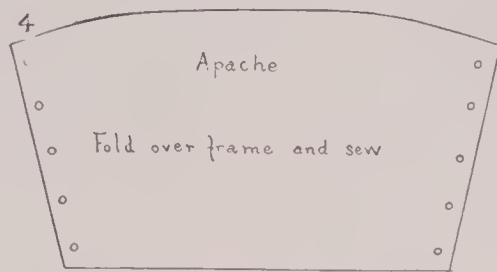 4
Apache
Fold over frame and sew